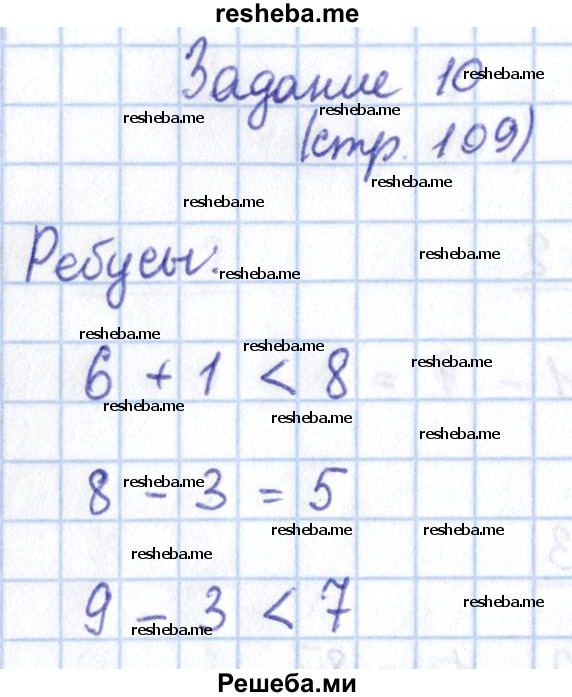 resheba.me
Задание 10
resheba.me
resheba.me
resheba.me
(стр. 109)
resheba.me
resheba.me
Ребусы:
resheba.me
resheba.me
resheba.me
resheba.me
resheba.me
6 + 1 < 8
resheba.me
resheba.me
resheba.me
8 - 3 = 5
resheba.me
resheba.me
resheba.me
resheba.me
9 - 3 < 7
resheba.me
resheba.me
Решеба.ми